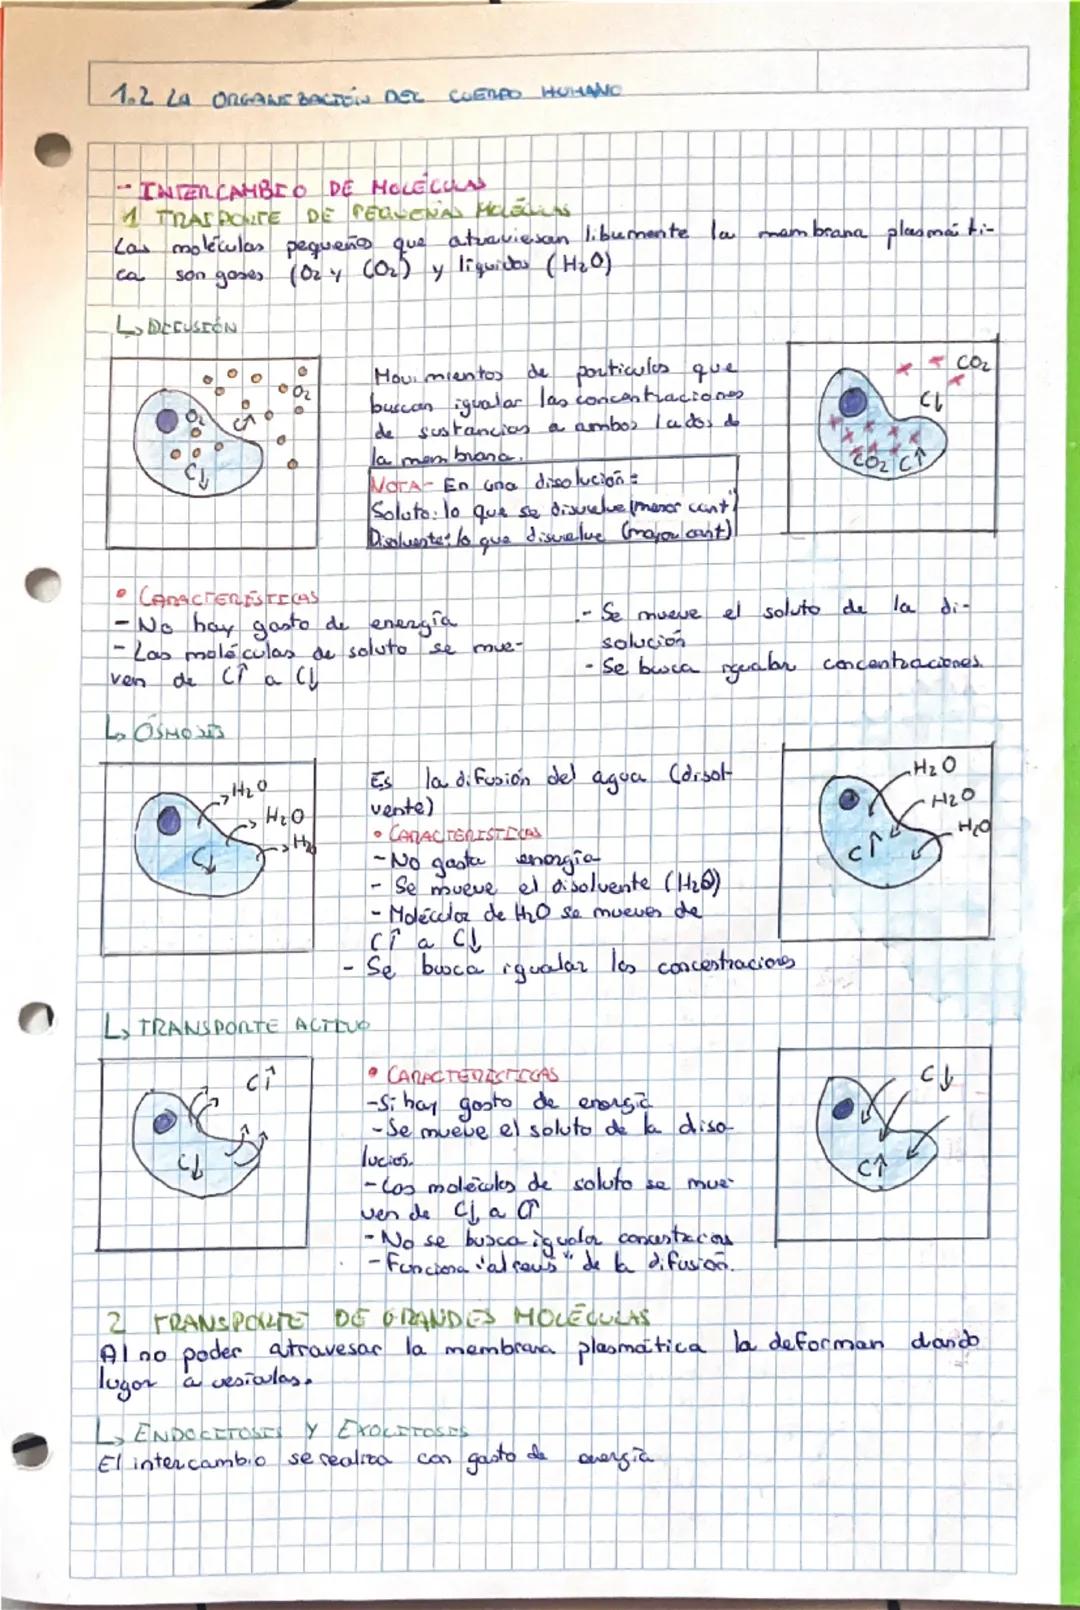 1.2 LA ORGANIZACIÓN DEL CUERPO HUMANO
- INTERCAMBIO DE MOLÉCULAS
1 TRASPORTE DE PEQUEÑAS MOLÉCULAS
Las moléculas pequeñas que atraviesan libremente la membrana plasmáti-
ca son gases (O2 y CO2) y líquidos (H2O)
↳ DIFUSIÓN
O2
O2
C↑
C↓
Movimientos de partículas que
buscan igualar las concentraciones
de sustancias a ambos lados de
la membrana.
NOTA- En una disolución:
Soluto: lo que se disuelve (menor cant)
Disolvente: lo que disuelve (mayor cant)
CO2
C↓
CO2 C↑
• CARACTERÍSTICAS
- No hay gasto de energía
- Las moléculas de soluto se mue-
ven de C↑ a C↓
- Se mueve el soluto de la di-
solución
- Se busca igualar concentraciones.
↳ ÓSMOSIS
H2O
H2O
H2O
C↓
Es la difusión del agua (disol-
vente)
• CARACTERISTICAS
- No gasta energía
- Se mueve el disolvente (H2O)
- Moléculas de H2O se mueven de
C↑ a C↓
- Se busca igualar las concentraciones
H2O
H2O
H2O
C↑
↳ TRANSPORTE ACTIVO
C↑
C↓
• CARACTERISTICAS
- Si hay gasto de energía
- Se mueve el soluto de la diso-
lución.
- Las moléculas de soluto se mue-
ven de C↓ a C↑
- No se busca igualar concentracions
- Funciona "al revés" de la difusión.
C↓
C↑
2 TRANSPORTE DE GRANDES MOLÉCULAS
Al no poder atravesar la membrana plasmática la deforman dando
lugar a vesículas.
↳ ENDOCITOSIS Y EXOCITOSIS
El intercambio se realiza con gasto de energía